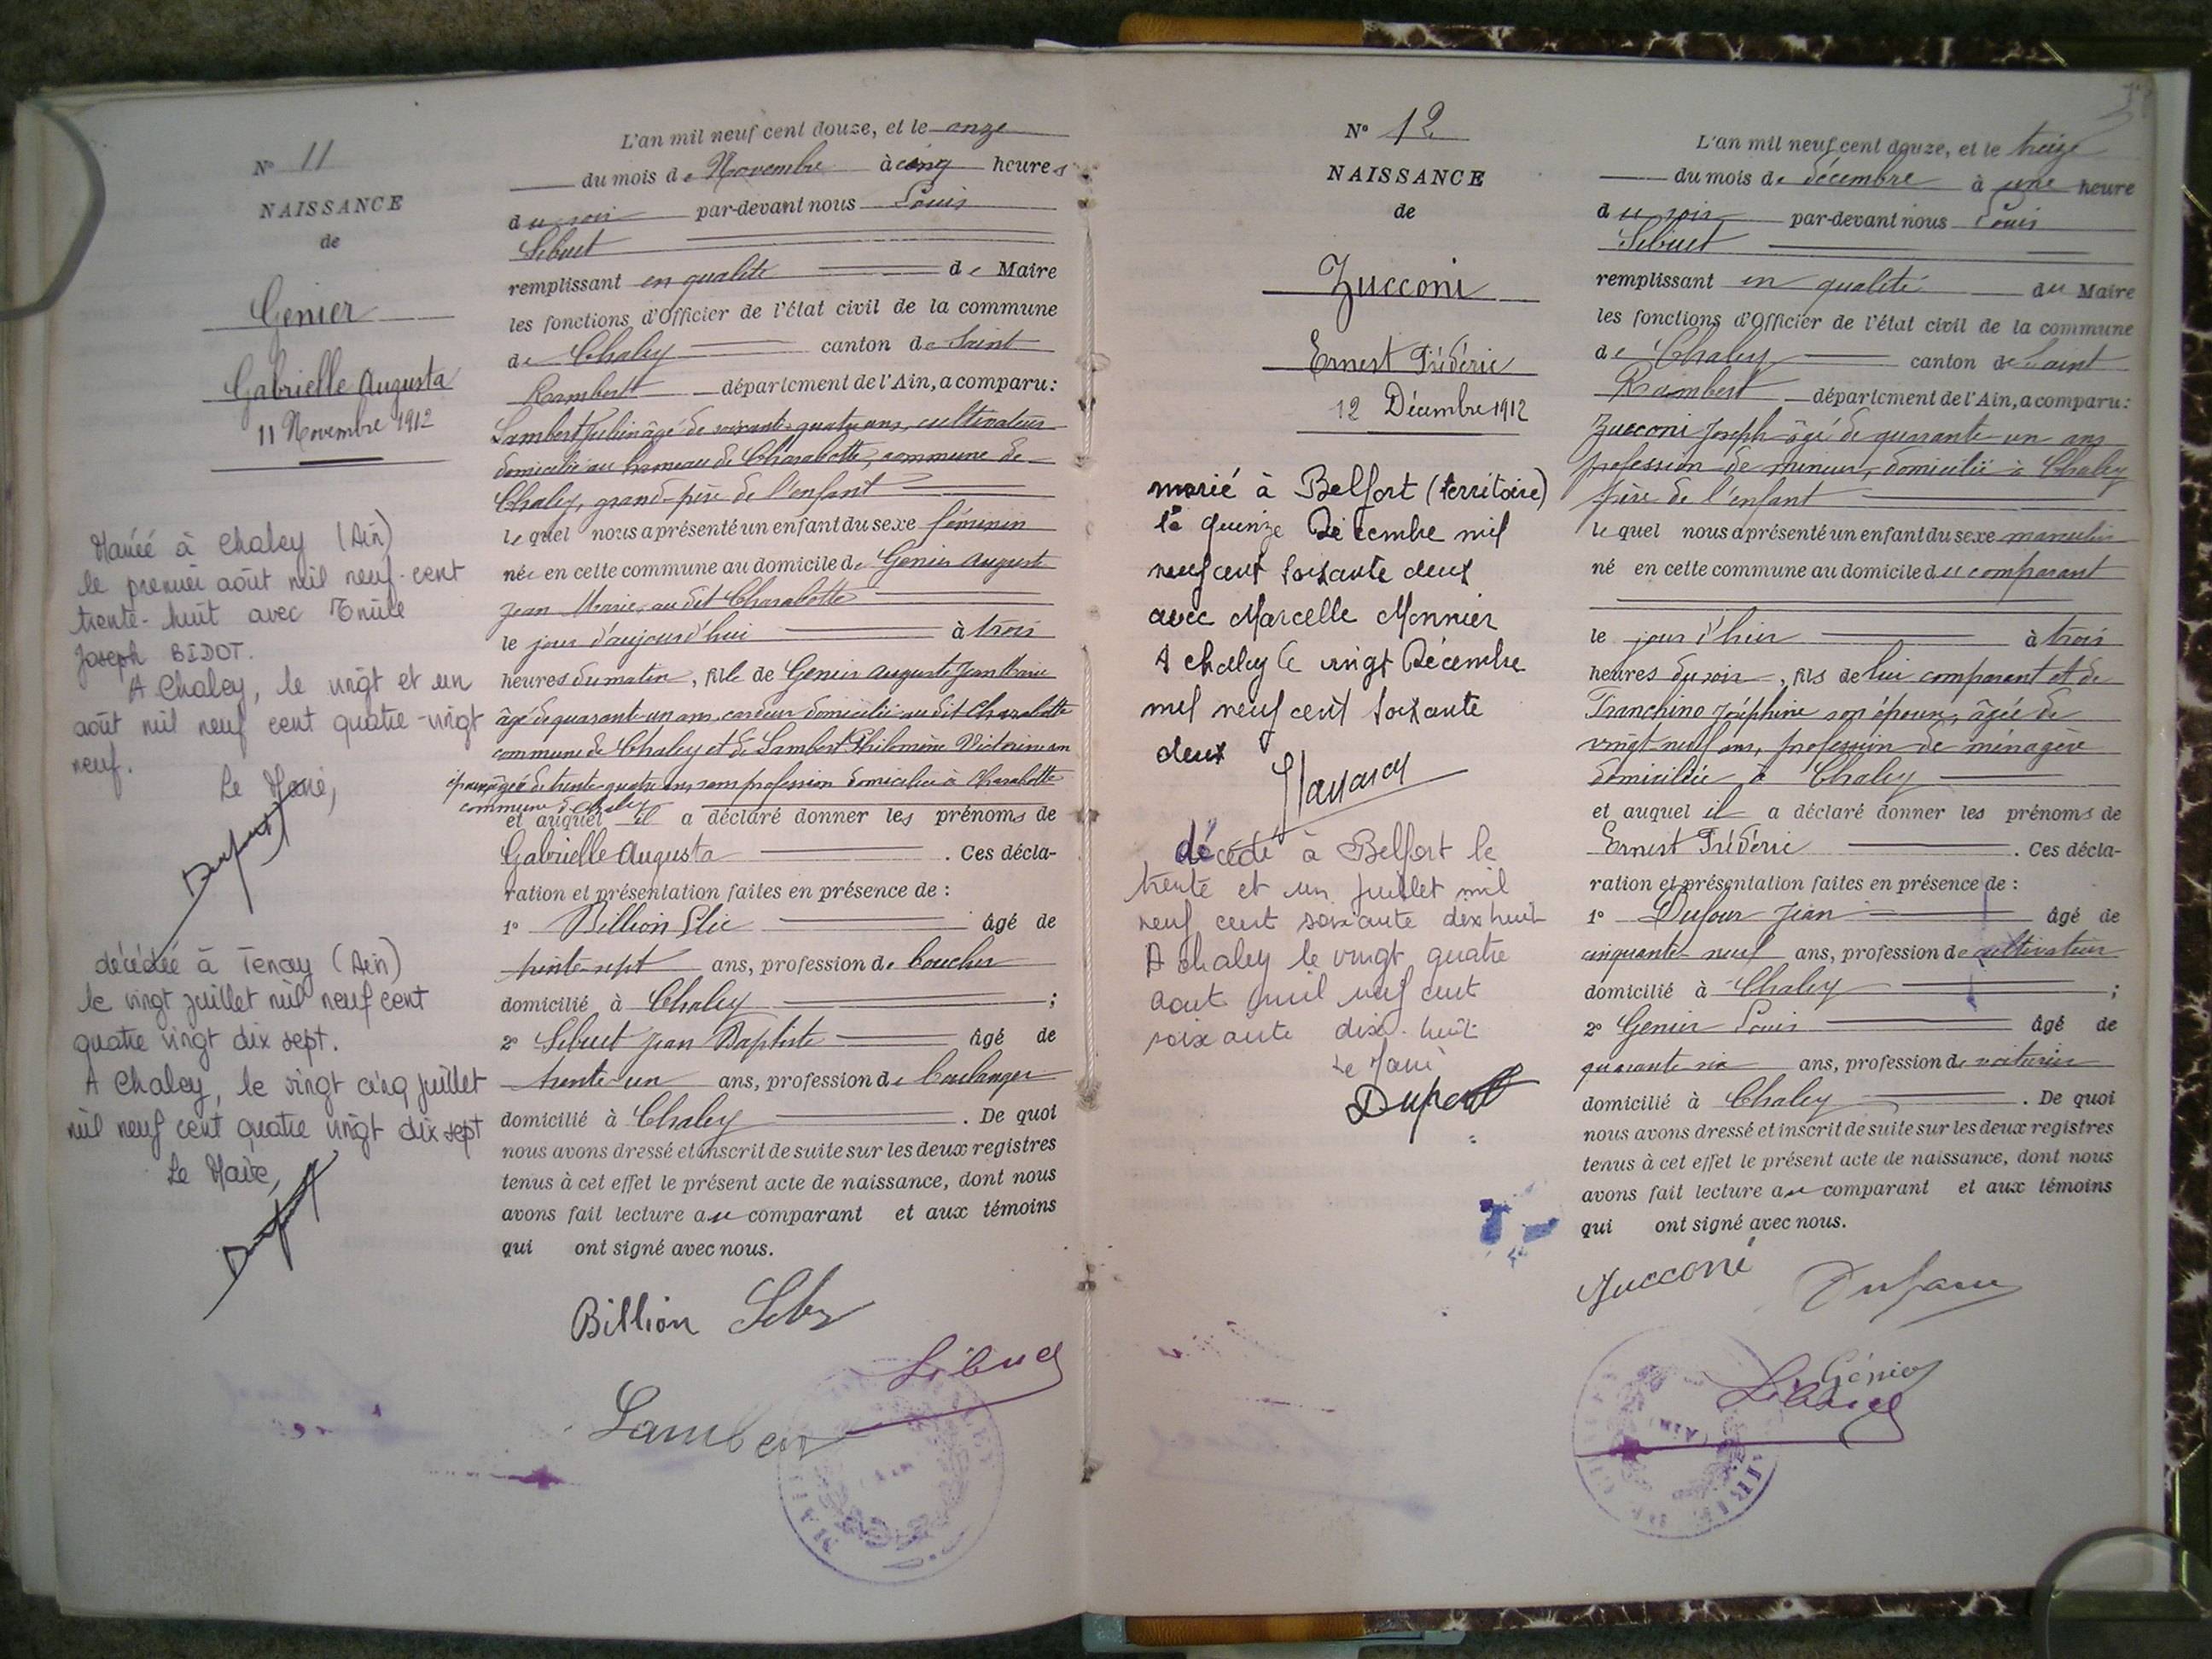 N° 11
NAISSANCE
de
Genier
Gabrielle Augusta
11 Novembre 1912
Mariée à Chaley (Ain)
le premier août mil neuf-cent
trente-huit avec Emile
Joseph BIDOT.
A Chaley, le vingt et un
août mil neuf cent quatre-vingt
neuf.
Le Maire,
Dupont
décédée à Tenay (Ain)
le vingt juillet mil neuf cent
quatre vingt dix sept.
A Chaley, le vingt cinq juillet
mil neuf cent quatre vingt dix sept
Le Maire,
Dupont
L'an mil neuf cent douze, et le onze
du mois de Novembre à cinq heures
du soir par-devant nous Louis
Sibuet
remplissant en qualité de Maire
les fonctions d'Officier de l'état civil de la commune
de Chaley canton de Saint
Rambert département de l'Ain, a comparu:
Lambert Julien âgé de soixante-quatre ans, cultivateur
domicilié au hameau de Charabotte, commune de
Chaley, grand-père de l'enfant
lequel nous a présenté un enfant du sexe féminin
née en cette commune au domicile de Genier Auguste
Jean Marie, au dit Charabotte
le jour d'aujourd'hui à trois
heures du matin, fille de Genier Auguste Jean Marie
âgé de quarante un ans, cardeur domicilié au dit Charabotte
commune de Chaley et de Lambert Philomène Victorine son
épouse âgée de trente-quatre ans, sans profession domiciliée à Charabotte
commune de Chaley
et auquel il a déclaré donner les prénoms de
Gabrielle Augusta . Ces décla-
ration et présentation faites en présence de :
1° Billion Elie âgé de
trente-sept ans, profession de boucher
domicilié à Chaley ;
2° Sibuet Jean Baptiste âgé de
trente-un ans, profession de boulanger
domicilié à Chaley . De quoi
nous avons dressé et inscrit de suite sur les deux registres
tenus à cet effet le présent acte de naissance, dont nous
avons fait lecture au comparant et aux témoins
qui ont signé avec nous.
Billion
Sibuet
Lambert
N° 12
NAISSANCE
de
Zucconi
Ernest Frédéric
12 Décembre 1912
marié à Belfort (territoire)
le quinze Décembre mil
neuf cent soixante deux
avec Marcelle Monnier
A chaley le vingt Décembre
mil neuf cent soixante
deux
décédé à Belfort le
trente et un juillet mil
neuf cent soixante dix huit
A chaley le vingt quatre
aout mil neuf cent
soixante dix-huit
Le Maire
Dupont
L'an mil neuf cent douze, et le treize
du mois de décembre à une heure
du soir par-devant nous Louis
Sibuet
remplissant en qualité du Maire
les fonctions d'Officier de l'état civil de la commune
de Chaley canton de Saint
Rambert département de l'Ain, a comparu:
Zucconi Joseph âgé de quarante un ans
profession de mineur, domicilié à Chaley
père de l'enfant
lequel nous a présenté un enfant du sexe masculin
né en cette commune au domicile du comparant
le jour d'hier à trois
heures du soir, fils de lui comparant et de
Franchino Joséphine son épouse, âgée de
vingt neuf ans, profession de ménagère
domiciliée à Chaley
et auquel il a déclaré donner les prénoms de
Ernest Frédéric . Ces décla-
ration et présentation faites en présence de :
1° Dufour Jean âgé de
cinquante-neuf ans, profession de cultivateur
domicilié à Chaley ;
2° Genier Louis âgé de
quarante six ans, profession de voiturier
domicilié à Chaley . De quoi
nous avons dressé et inscrit de suite sur les deux registres
tenus à cet effet le présent acte de naissance, dont nous
avons fait lecture au comparant et aux témoins
qui ont signé avec nous.
Zucconi
Dufour
Génier
Sibuet